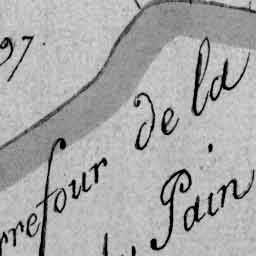 97.
rrefour de la
Pain